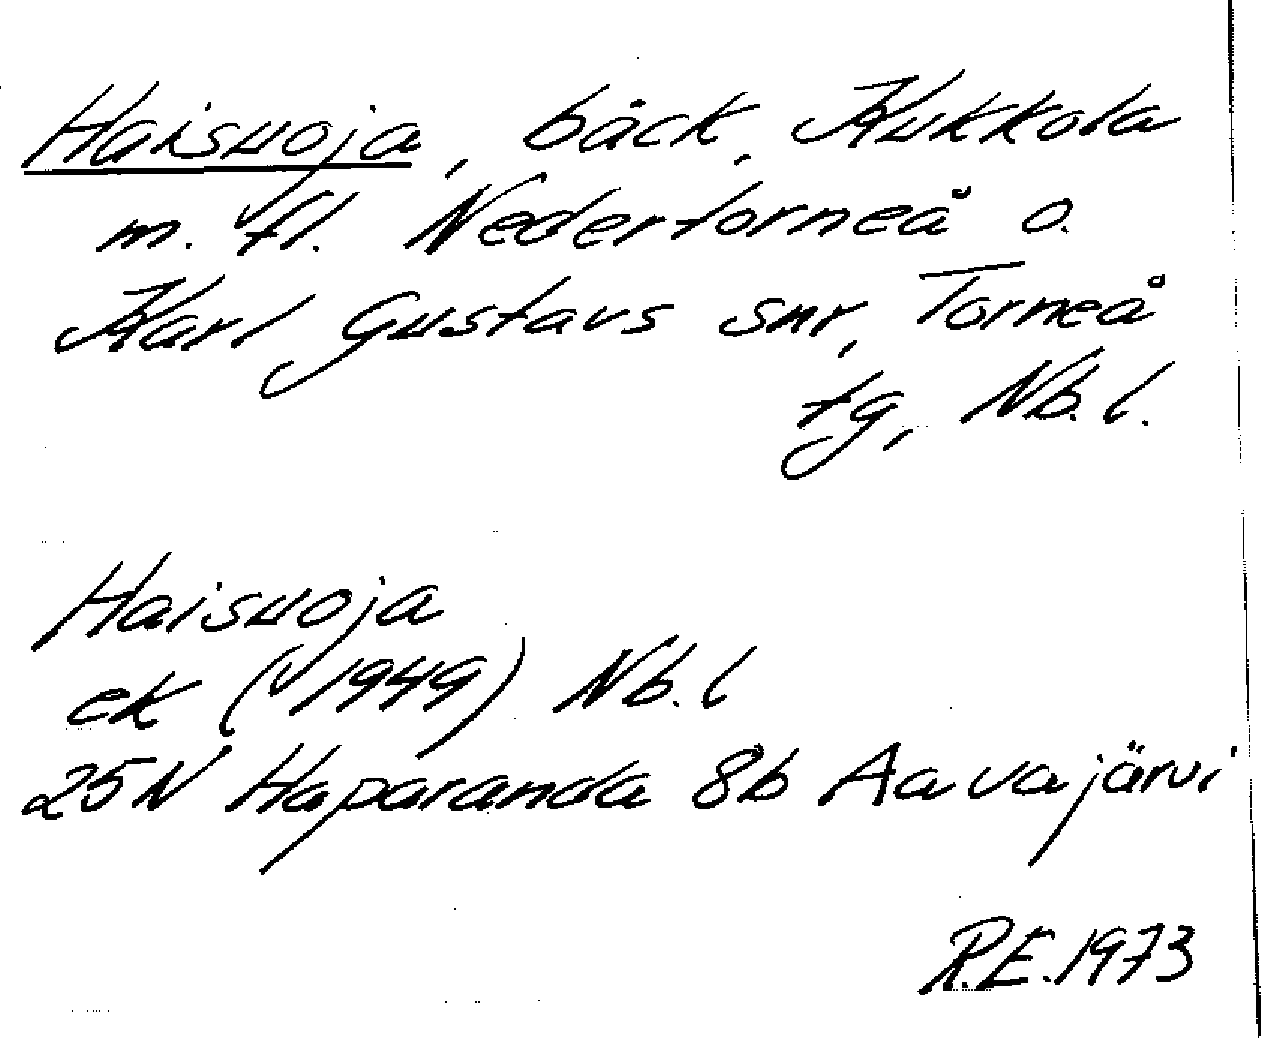 Haisuoja, bäck, Kukkola
m. fl. Nedertorneå o.
Karl Gustavs snr, Torneå
tg, Nb. l.
Haisuoja
ek (1949) Nb. l
25N Haparanda 8b Aavajärvi
R.E. 1973